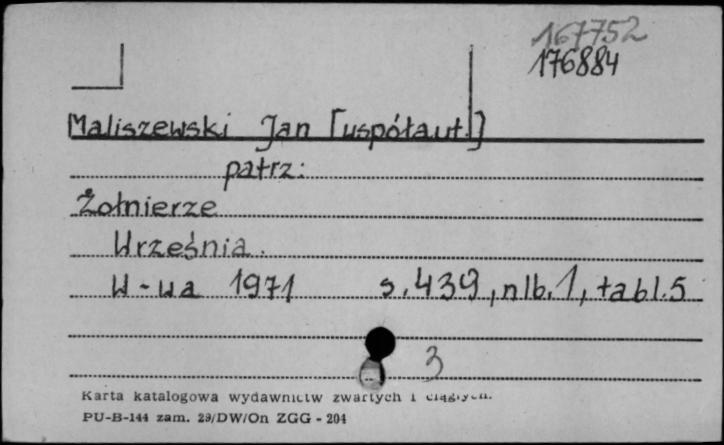 167752
176884
Maliszewski Jan [współaut.]
patrz:
Żołnierze
Września.
W-wa 1971 s. 439, nlb. 1, tabl. 5
3
Karta katalogowa wydawnictw zwartych i ciągłych.
PU-B-144 zam. 29/DW/On ZGG - 204